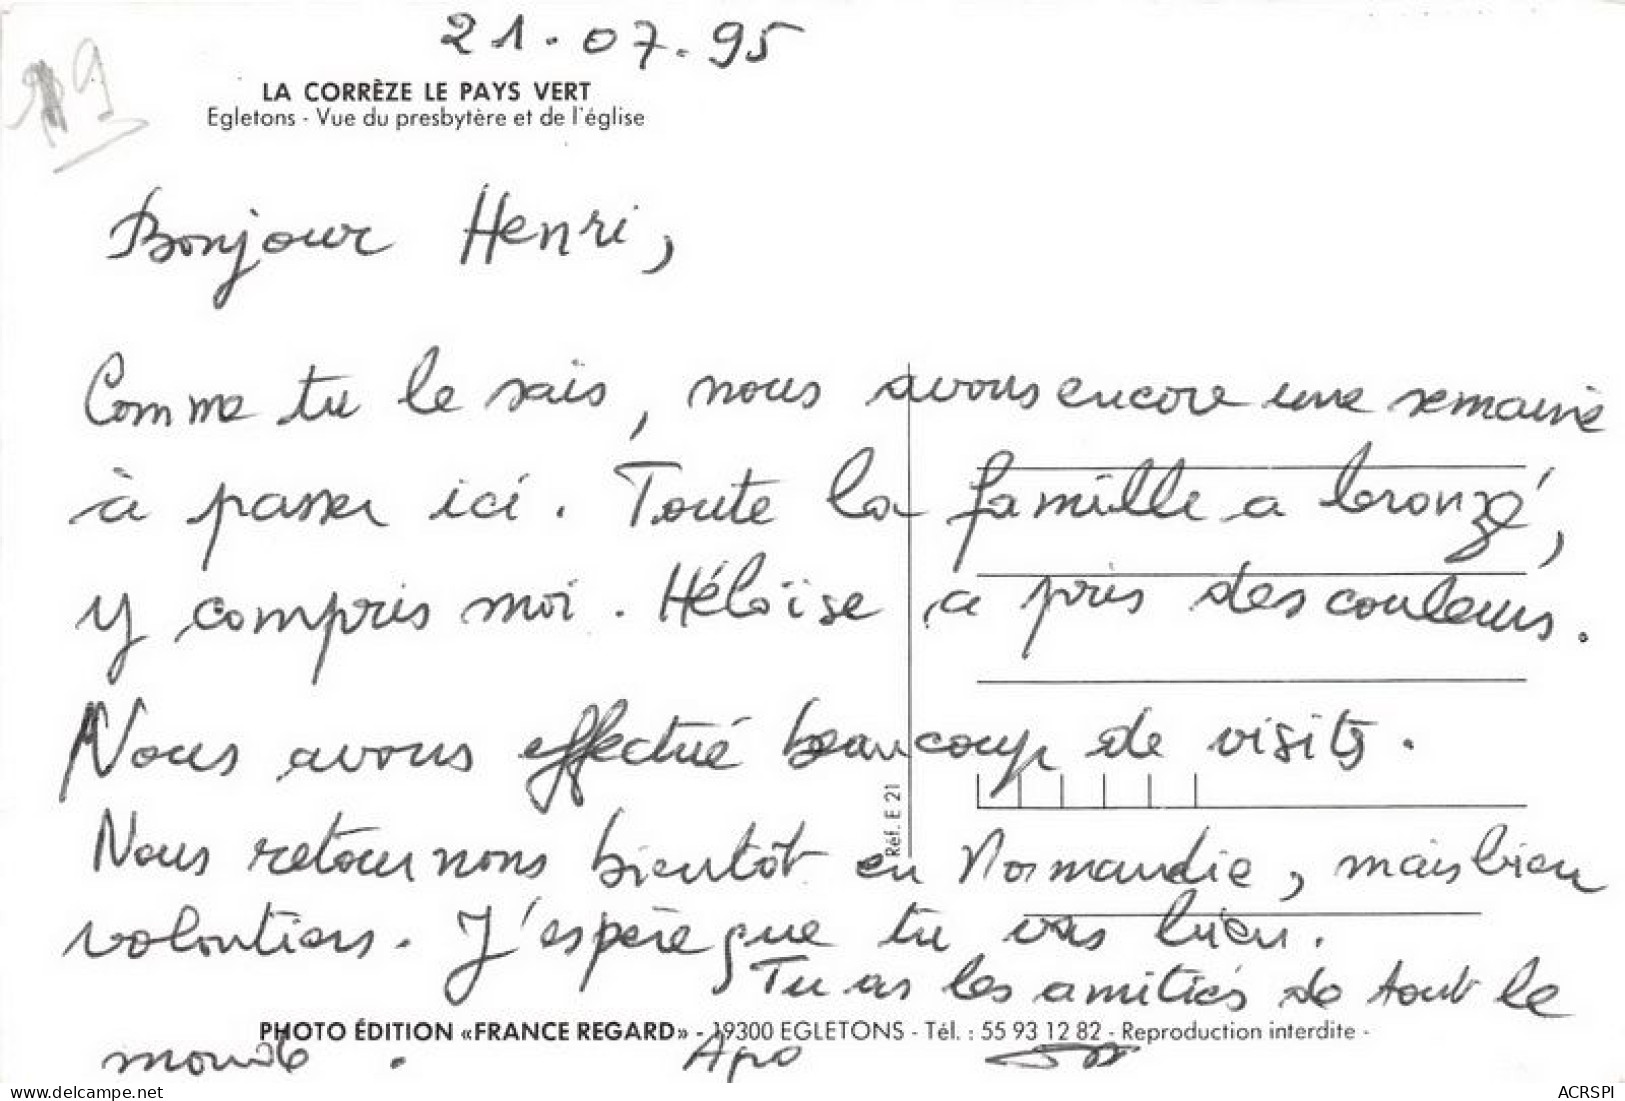 21.07.95
19
LA CORRÈZE LE PAYS VERT
Egletons - Vue du presbytère et de l'église
Bonjour Henri,
Comme tu le sais, nous avons encore une semaine
à passer ici. Toute la famille a bronzé,
y compris moi. Héloïse a pris des couleurs.
Nous avons effectué beaucoup de visites.
Nous retournons bientôt en Normandie, mais bien
volontiers. J'espère que tu vas bien.
Tu as les amitiés de tout le
monde.
Réf. E 21
PHOTO ÉDITION «FRANCE REGARD» - 19300 EGLETONS - Tél. : 55 93 12 82 - Reproduction interdite -
delcampe.net
ACRSPI